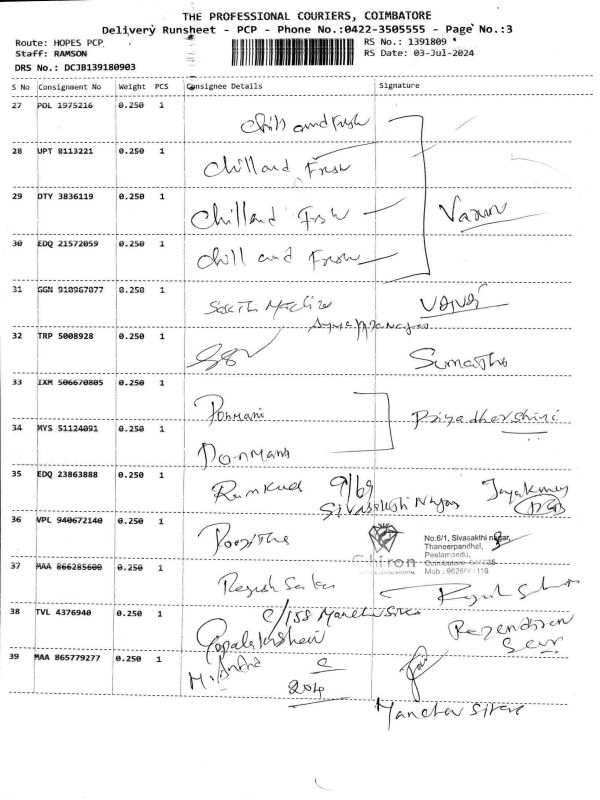 THE PROFESSIONAL COURIERS, COIMBATORE
Delivery Runsheet - PCP - Phone No.:0422-3505555 - Page No.:3
Route: HOPES PCP
RS No.: 1391809
Staff: RAMSON
RS Date: 03-Jul-2024
DRS No.: DCJB139180903
S No Consignment No Weight PCS Consignee Details Signature
27 POL 1975216 0.250 1 Chill and Fresh
28 UPT 8113221 0.250 1 Chill and Fresh
29 OTY 3836119 0.250 1 Chill and Fresh Varun
30 EDQ 21572059 0.250 1 Chill and Fresh
31 GGN 910967077 0.250 1 Sakthi
32 TRP 5008928 0.250 1 Sumathi
33 IXM 506670805 0.250 1 Ponmani Priyadharshini
34 MYS 51124091 0.250 1 Ponmani
35 EDQ 23863888 0.250 1 9/69 Sivasakthi Nagar Jayakumar
36 VPL 940672140 0.250 1
Chiron
DENTAL HOSPITAL
No.6/1, Sivasakthi nagar,
Thaneerpandhal,
Peelamedu,
Coimbatore
37 MAA 866285600 0.250 1
38 TVL 4376940 0.250 1 Rajendran
39 MAA 865779277 0.250 1 M. Anand
204